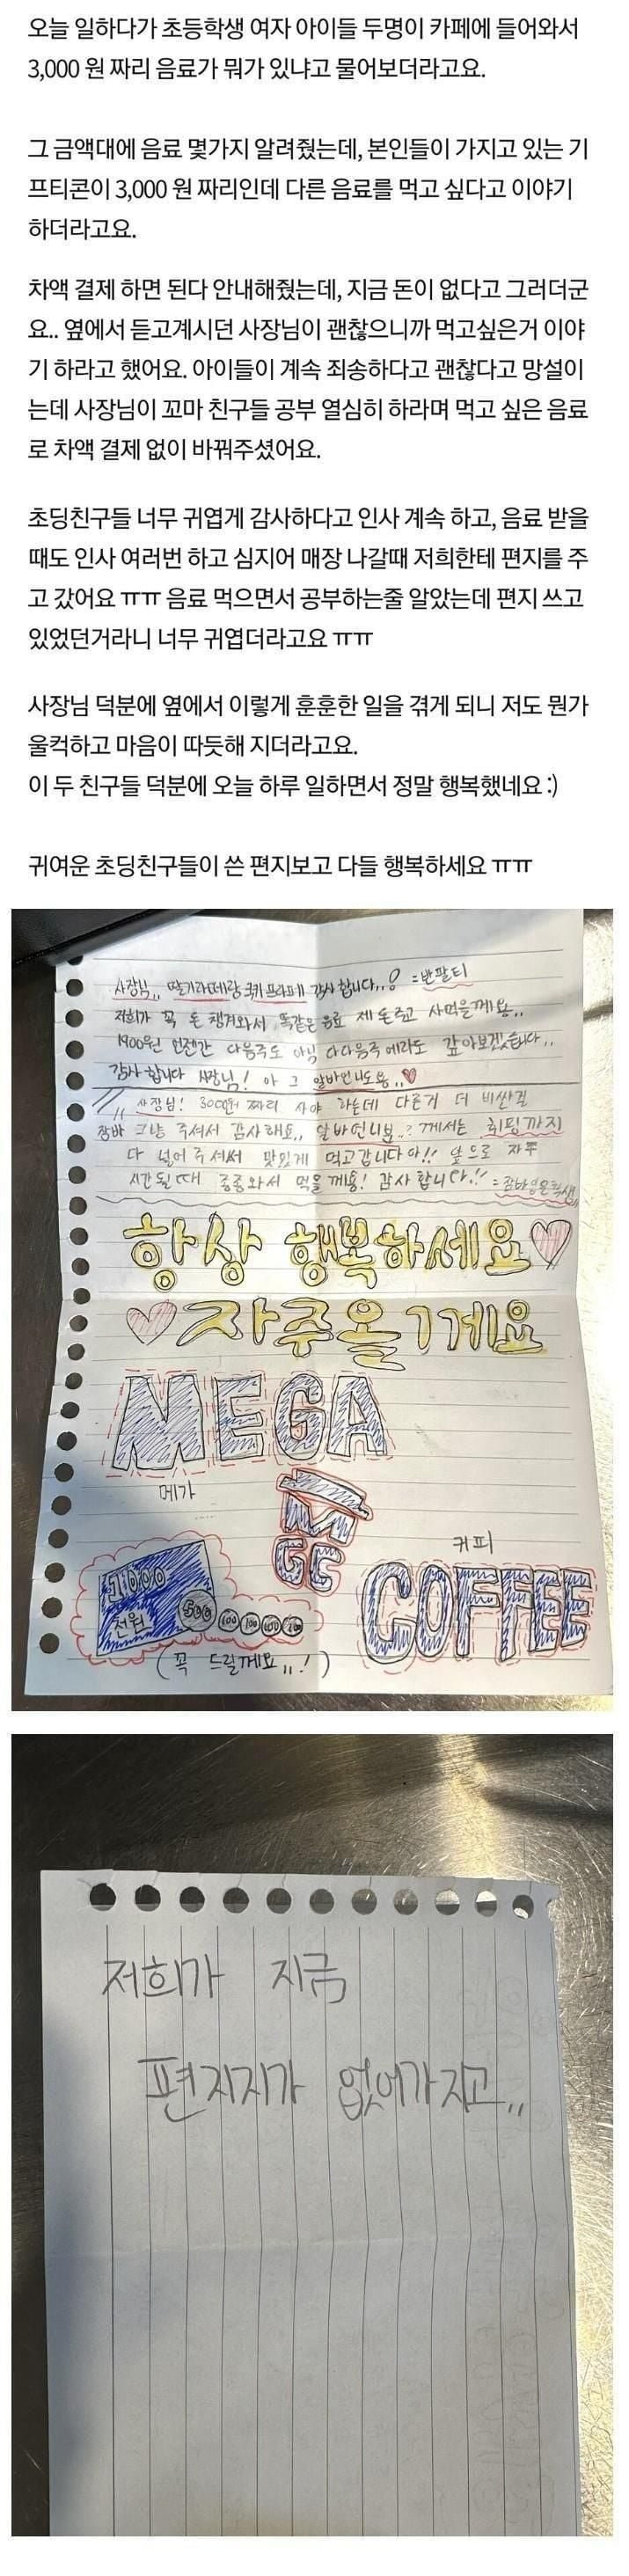 오늘 일하다가 초등학생 여자 아이들 두명이 카페에 들어와서
3,000 원 짜리 음료가 뭐가 있냐고 물어보더라고요.
그 금액대에 음료 몇가지 알려줬는데, 본인들이 가지고 있는 기
프티콘이 3,000 원 짜리인데 다른 음료를 먹고 싶다고 이야기
하더라고요.
차액 결제 하면 된다 안내해줬는데, 지금 돈이 없다고 그러더군
요.. 옆에서 듣고계시던 사장님이 괜찮으니까 먹고싶은거 이야
기 하라고 했어요. 아이들이 계속 죄송하다고 괜찮다고 망설이
는데 사장님이 꼬마 친구들 공부 열심히 하라며 먹고 싶은 음료
로 차액 결제 없이 바꿔주셨어요.
초딩친구들 너무 귀엽게 감사하다고 인사 계속 하고, 음료 받을
때도 인사 여러번 하고 심지어 매장 나갈때 저희한테 편지를 주
고 갔어요 ㅠㅠ 음료 먹으면서 공부하는줄 알았는데 편지 쓰고
있었던거라니 너무 귀엽더라고요 ㅠㅠ
사장님 덕분에 옆에서 이렇게 훈훈한 일을 겪게 되니 저도 뭔가
울컥하고 마음이 따듯해 지더라고요.
이 두 친구들 덕분에 오늘 하루 일하면서 정말 행복했네요 :)
귀여운 초딩친구들이 쓴 편지보고 다들 행복하세요 ㅠㅠ
사장님,, 딸기라떼랑 쿠키프라페 감사합니다,,! =반팔티
저희가 꼭 돈 챙겨와서 똑같은 음료 제 돈주고 사먹을께용..
1900원 언젠간 다음주도 아님 다다음주에라도 갚아보겠습니다..
감사합니다 사장님! 아 그 알바언니도용,,♥
사장님! 3000원 짜리 사야 하는데 다른거 더 비싼걸
그냥 주셔서 감사해요,, 알바언니분..? 께서는 휘핑까지
다 넣어주셔써 맛있게 먹고갑니다아!! 앞으로 자주
시간될때 종종와서 먹을께용! 감사합니다!!
항상 행복하세요♡
♡자주올게요
MEGA
메가
M
GC
커피
COFFEE
1000
천원
500 100 100 100 100
(꼭 드릴께요,,!)
저희가 지금
편지지가 없어가지고,,